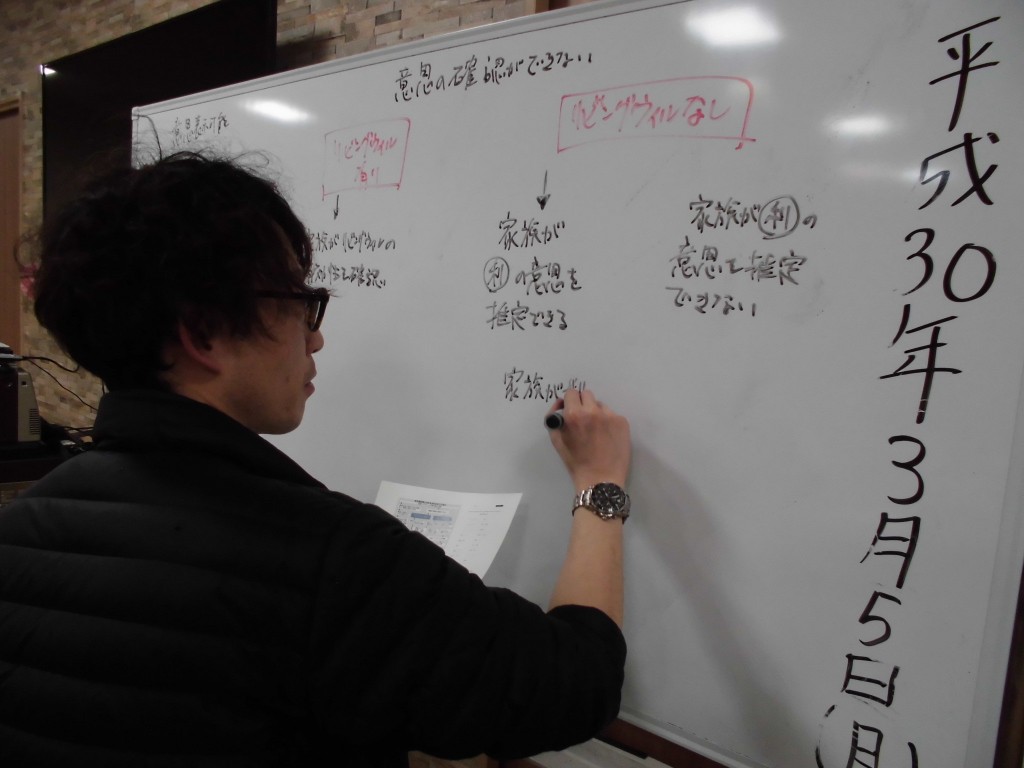 意思の確認ができない
意思表示可能
リビングウィル
有り
リビングウィルなし
家族がリビングウィルの
家族が
利の意思を
推定できる
家族が利の
意思を推定
できない
家族が
平成30年3月5日(月)